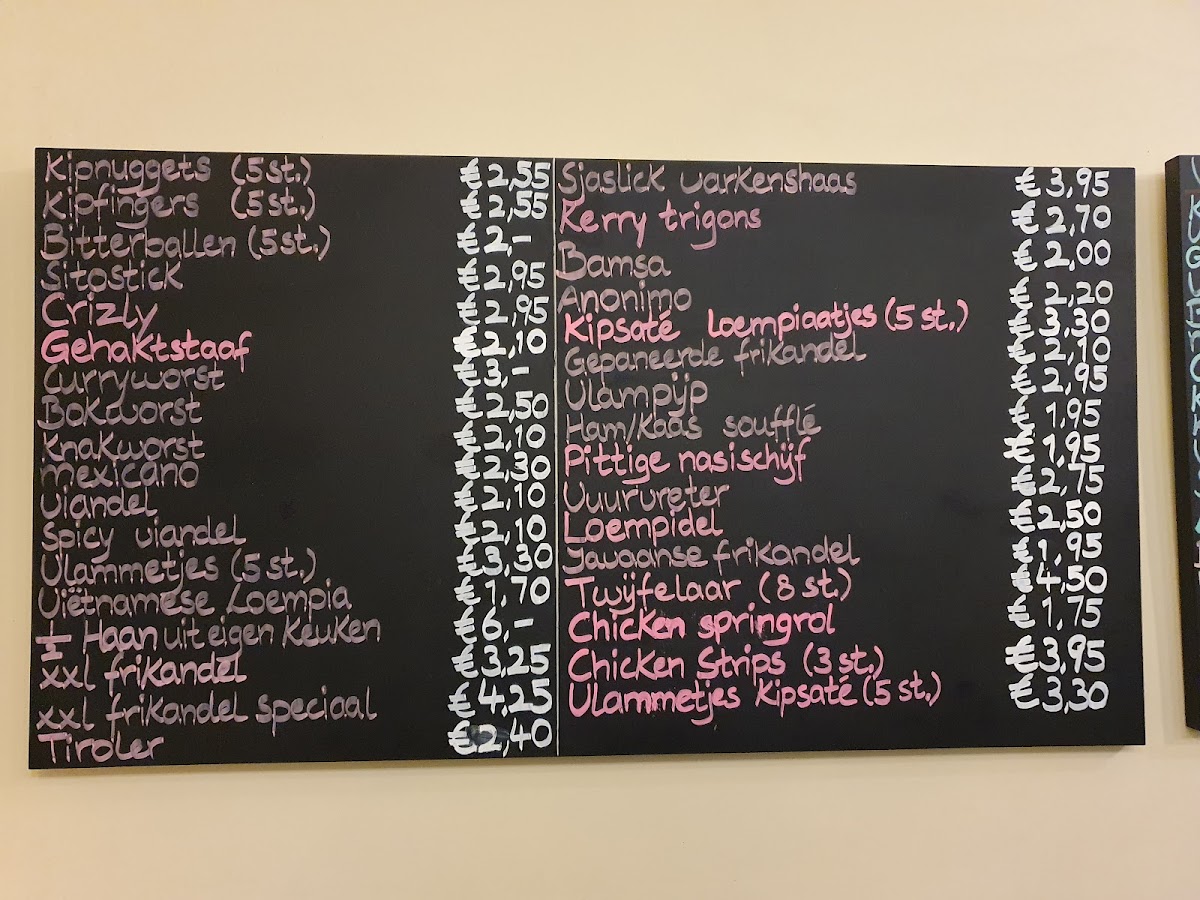 Kipnuggets (5st.) 2,55
Kipfingers (5st.) 2,55
Bitterballen (5st.) 2,-
Sitostick 2,95
Crizly 2,95
Gehaktstaaf 2,10
Curryworst 3,-
Bokworst 2,50
Knakworst 2,10
Mexicano 2,30
Viandel 2,10
Spicy viandel 2,10
Vlammetjes (5st.) 3,30
Viëtnamese Loempia 1,70
½ Haan uit eigen keuken 6,-
xxl frikandel 3,25
xxl frikandel speciaal 4,25
Tiroler 2,40
Sjaslick varkenshaas 3,95
Kerry trigons 2,70
Bamsa 2,00
Anonimo 2,20
Kipsaté loempiaatjes (5 st.) 3,30
Gepaneerde frikandel 2,10
Vlampijp 2,95
Ham/kaas soufflé 1,95
Pittige nasischijf 1,95
Vuurvreter 2,75
Loempidel 2,50
Javaanse frikandel 1,95
Twijfelaar (8 st.) 4,50
Chicken springrol 1,75
Chicken Strips (3 st.) 3,95
Vlammetjes Kipsaté (5 st.) 3,30